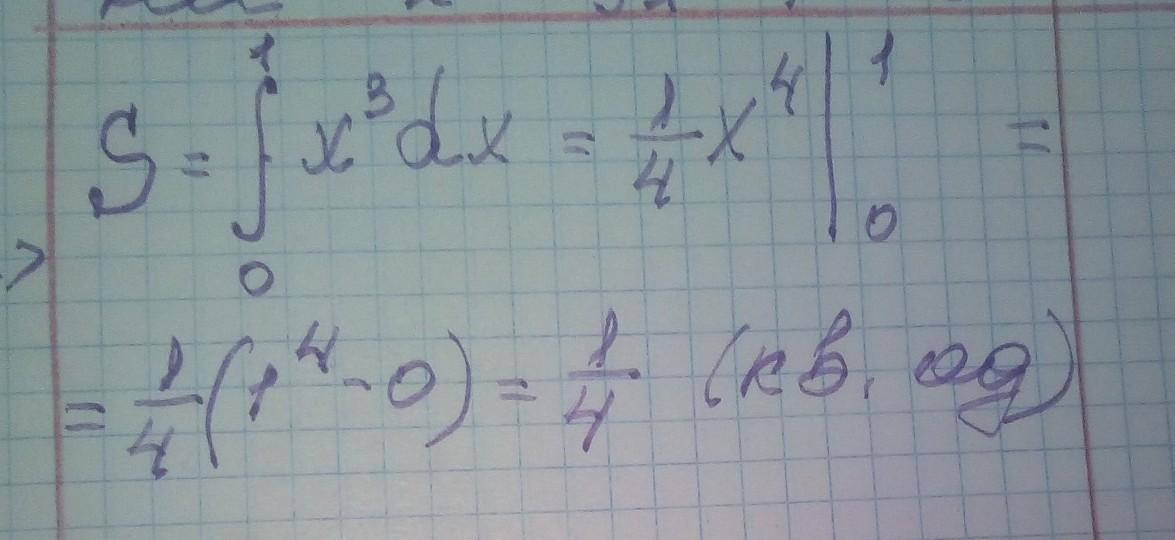 S = ∫₀¹ x³dx = 1/4 x⁴ |₀¹ =
= 1/4 (1⁴ - 0) = 1/4 (кв. од)